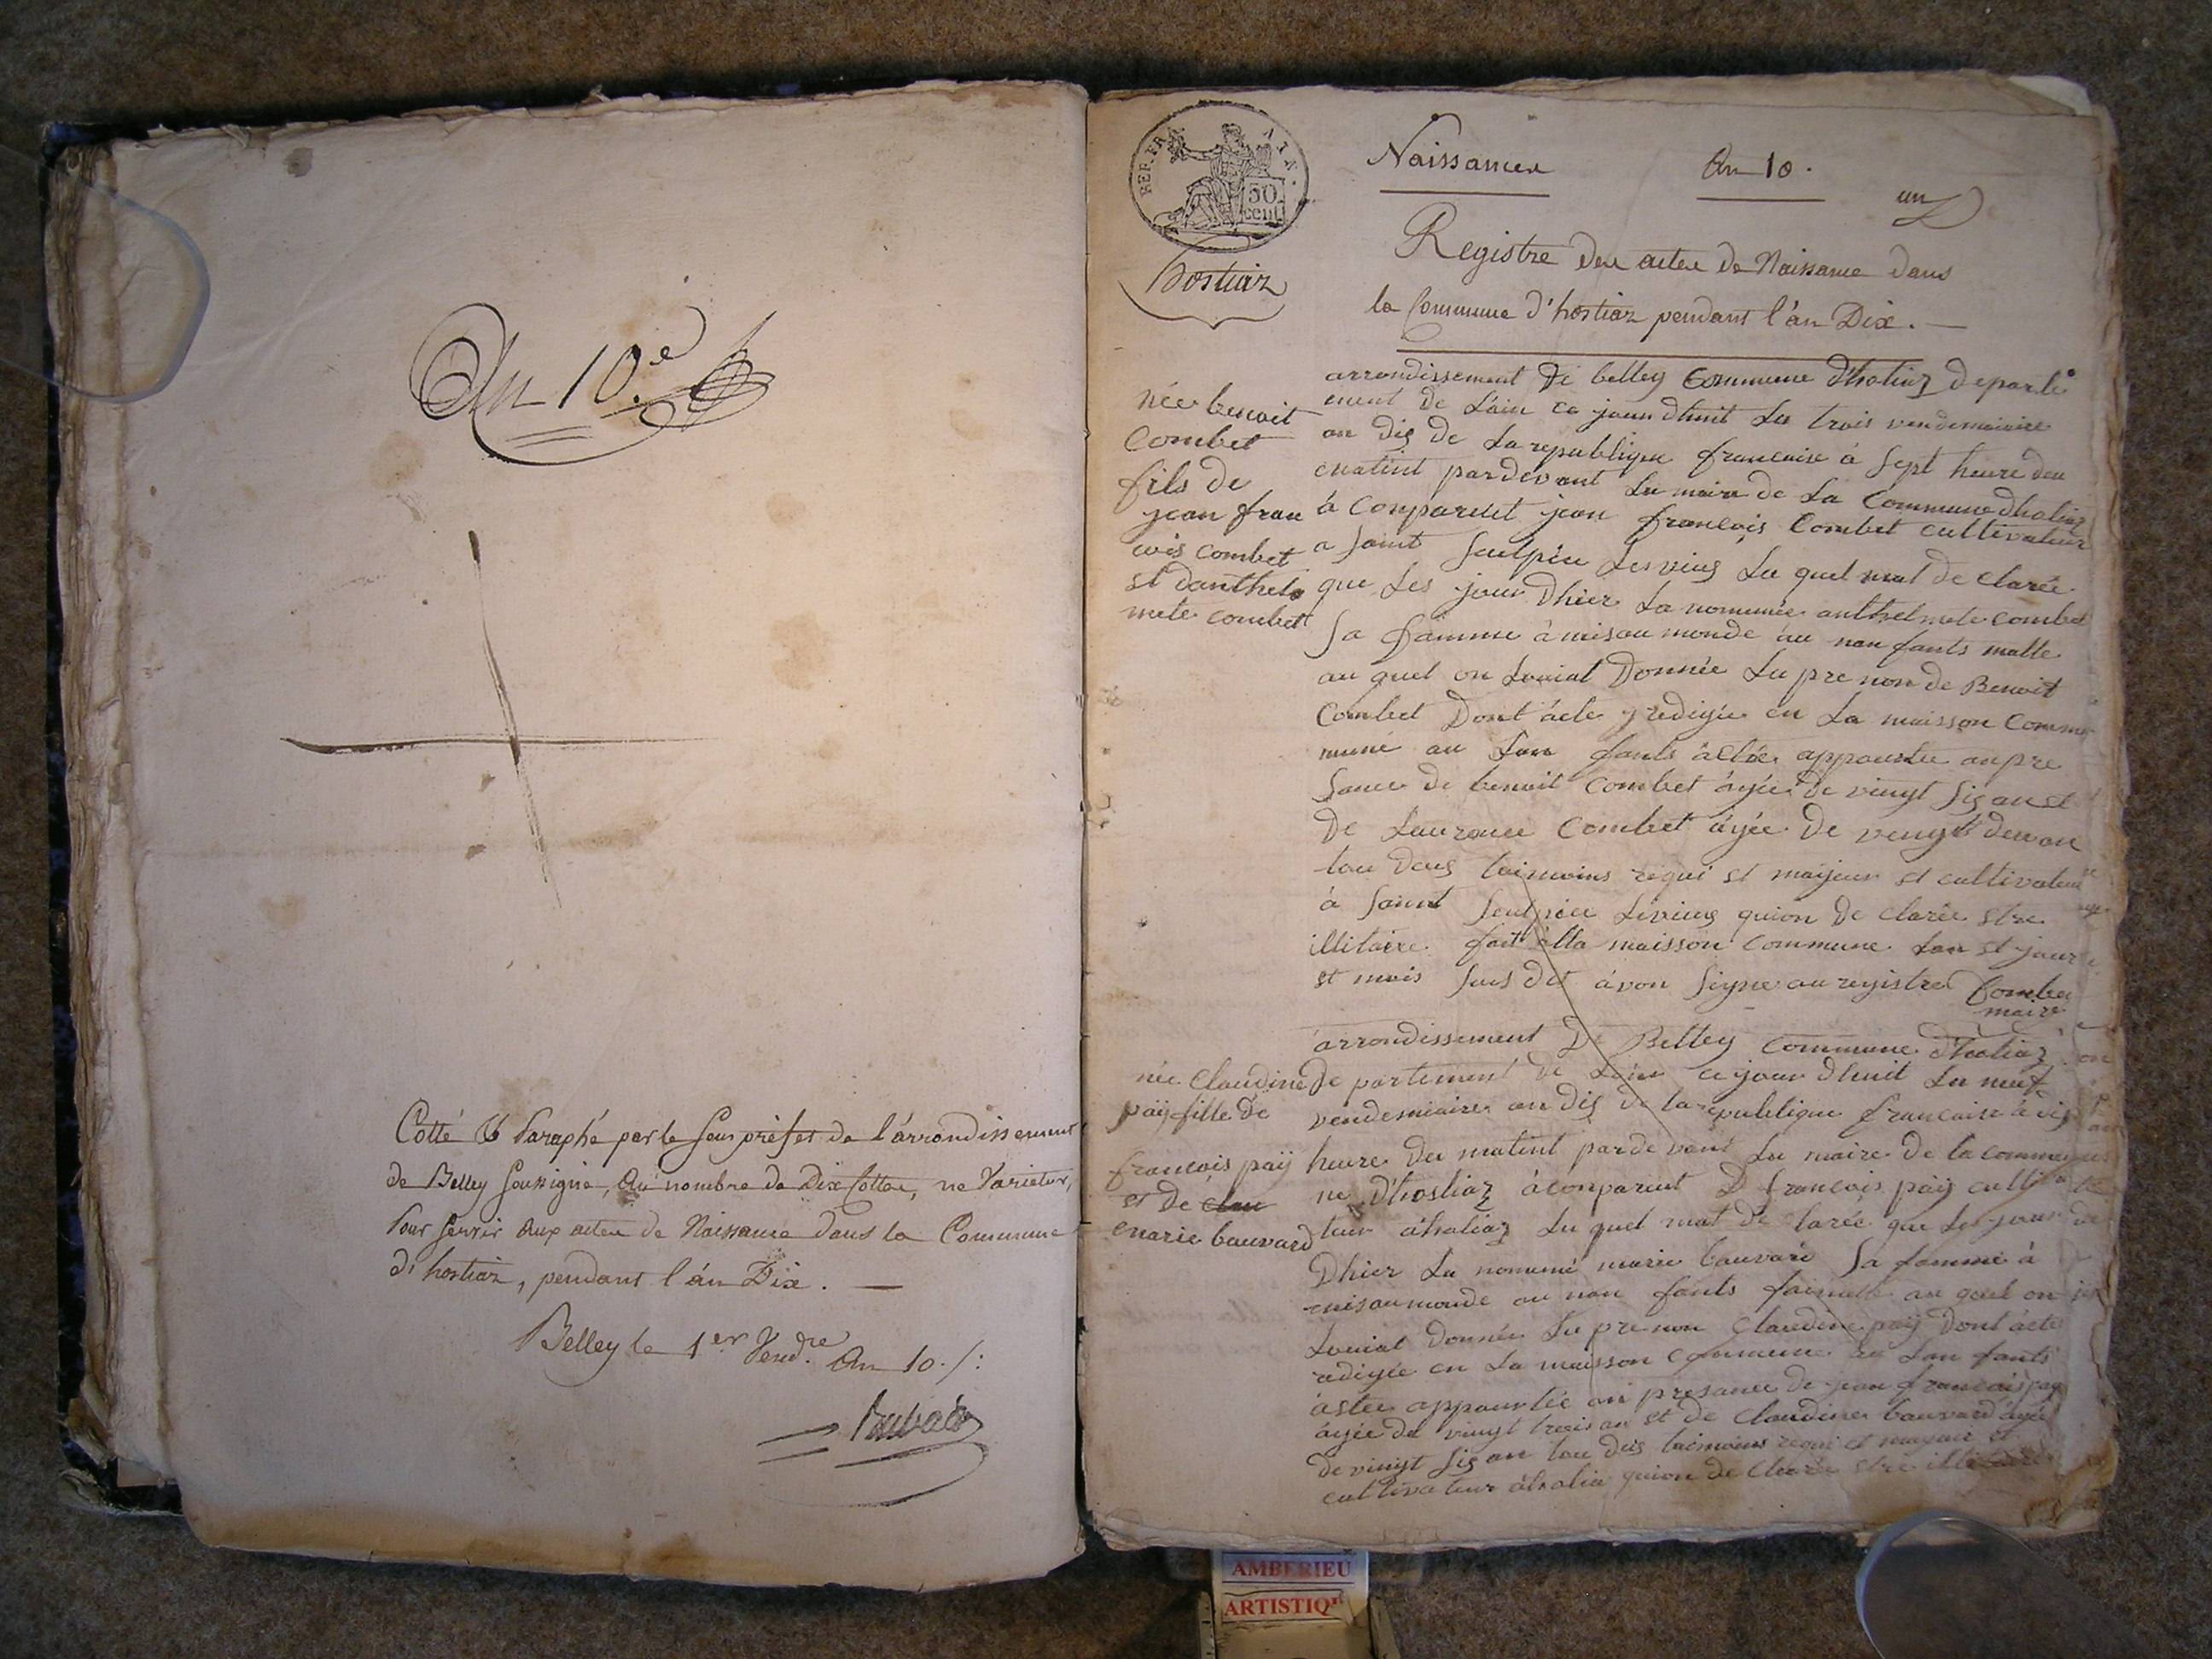 An 10.e
Cotté & Paraphé par le sous préfet de l'arrondissement
de Belley soussigné, au nombre de Dix Cottes, ne Varietur,
Pour servir aux actes de Naissance dans la Commune
d'hostiaz, pendant l'an Dix. —
Belley le 1er Vend.re An 10./:
REP. FRA
50
cent
hostiaz
Naissances An 10.
un
Registre des actes de Naissance dans
la Commune d'hostiaz pendant l'an Dix. —
née benoit
Combet
fils de
jean fran
cois combet
et danthel
mete combet
arrondissement de belley Commune dhotiaz departe
ment de Lain ce jourdhuit Le trois vendemiaire
an dis de La republique francaise à sept heure du
matint pardevant Le maire de La Commune dhotiaz
à Conparut jean francois Combet cultivateur
a saint Sulpice Levieus Le quel mat de clarée
que Les jour dhier La nommée anthelmete combet
sa famme à misau monde au nan fants malle
au quel on Louiat Donnée Le pre non de Benoit
Combet Dont acte redigée en La maisson Comm
mune au Lan fants acteé appourtée an pre
sance de benoit Combet agée de vingt sis an et
De Laurance Combet agée De vengt deu an
tou deus taimoins requi et majeur et cultivateur
à saint Sulpice Levieus quion de clarée etre
illitaire fait alla maisson Commune Lan et jour
et mois sus dit avon signe au registre Combet
maire
née Claudine
paÿ fille de
francois paÿ
et de clau
marie bauvard
arrondissement De Belley Commune dhotiaz
De partement de Lain ce jour dhuit Le neuf
vendemiaire an dis de la republique francaise à dis
heure du matint pardevant Le maire de la commu
ne d'hostiaz àconparut francois paÿ cultiva
teur ahotiaz Le quel mat de clarée que Les jour
Dhier La nommé marie bauvard sa famme à
misau monde au nan fants faimelle au quel on
Louiat Donnée Le pre non Claudine paÿ Dont acte
redigée en La maisson Commune au Lan fants
actée appourtée an presance de jean francois pay
agée de vingt trois an et de Claudine bauvard agée
de vingt sis an tou deis taimoins requi et majeur et
cultivateur ahotia quion de Clarée etre illitaire
AMBERIEU
ARTISTIQ